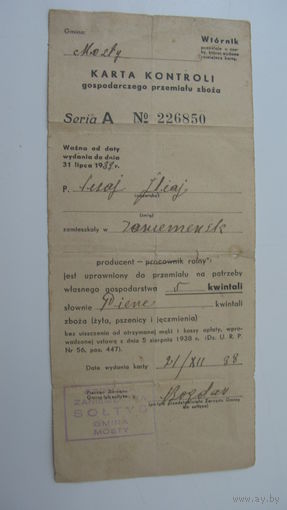 Gmina:
Mosty
Wtórnik
KARTA KONTROLI
gospodarczego przemiału zboża
Seria A № 226850
Ważna od daty
wydania do dnia
31 lipca 1939 r.
P.
(nazwisko)
(imię)
zamieszkały w Zaniemeńsk
producent — pracownik rolny*)
jest uprawniony do przemiału na potrzeby
własnego gospodarstwa 5 kwintali
słownie Pienc kwintali
zboża (żyta, pszenicy i jęczmienia)
bez uiszczenia od otrzymanej mąki i kaszy opłaty, wpro-
wadzonej ustawą z dnia 5 sierpnia 1938 r. (Dz. U. R. P.
Nr 56, poz. 447).
Data wydania karty 21/XII 38
Pieczęć Zarządu
Gminy lub sołtysa
SOŁTYS
GMINA
MOSTY
(podpis przedstawiciela Zarządu Gminy
lub sołtysa)
av.by